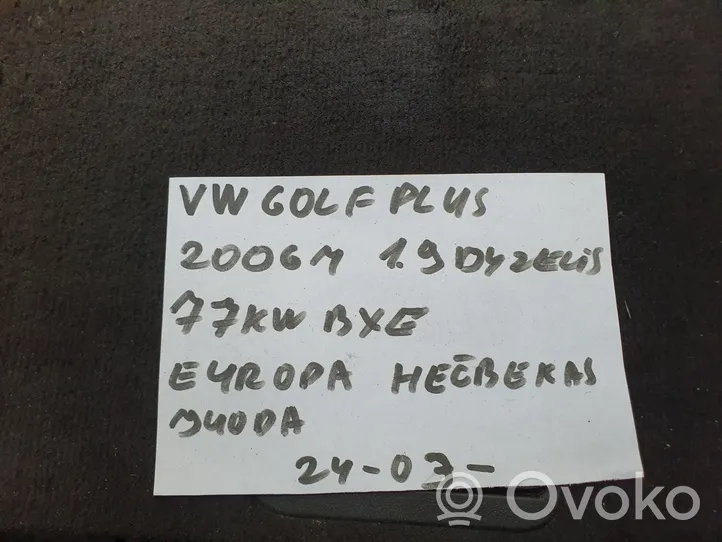 VW GOLF PLUS
2006M 1.9 DYZELIS
77KW BXE
EYROPA HEČBEKAS
JUODA
24-07-
Ovoko